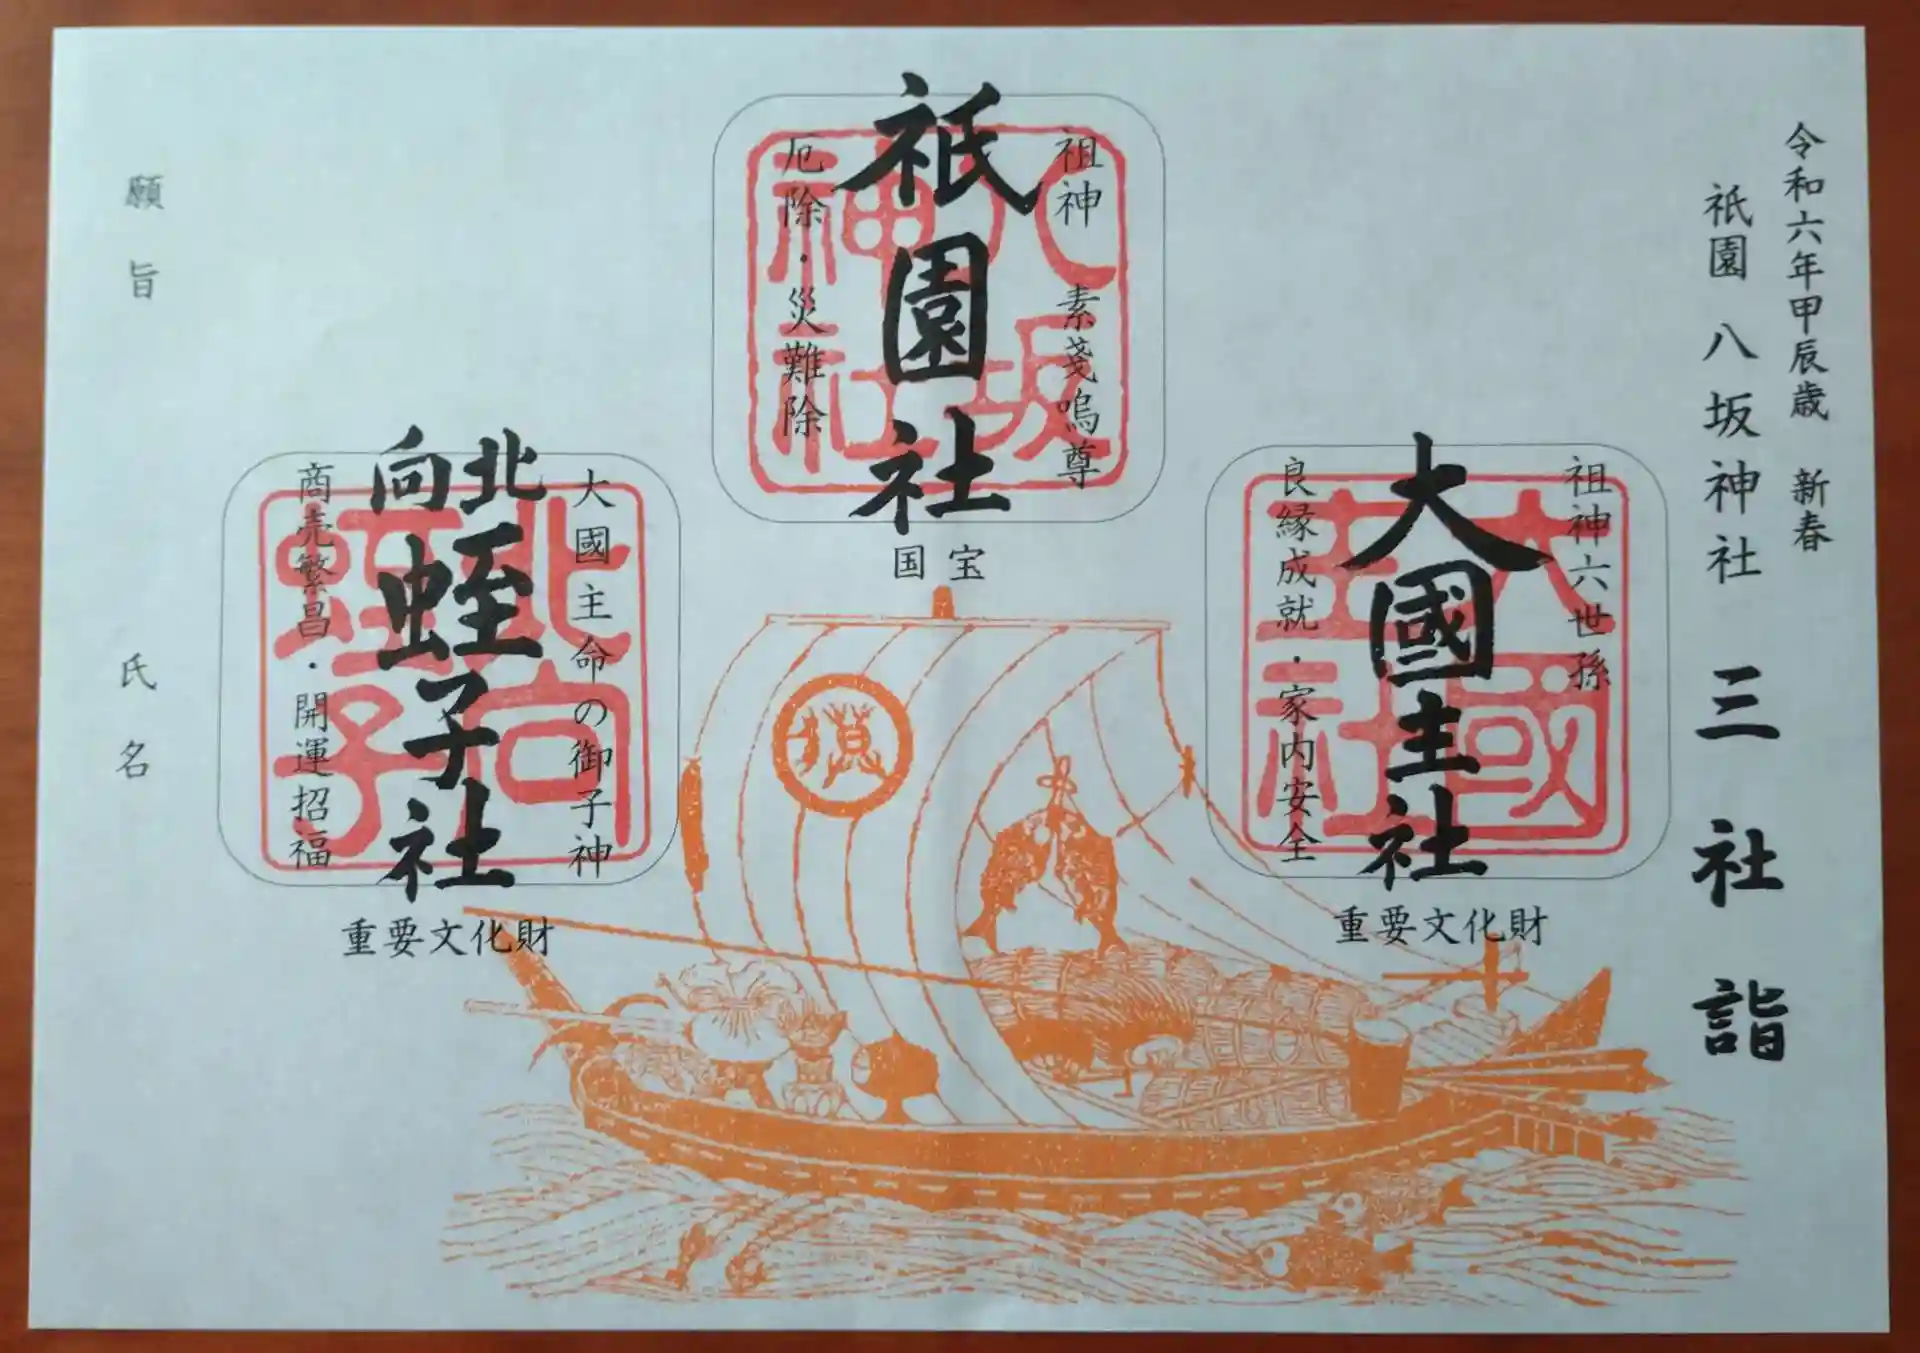 令和六年甲辰歳 新春
祇園 八坂神社 三社詣
祖神六世孫
大國主社
良縁成就・家内安全
大國主社
重要文化財
祖神 素戔嗚尊
祇園社
厄除・災難除
八坂神社
国宝
大國主命の御子神
北向
蛭子社
商売繁昌・開運招福
北向蛭子
重要文化財
願旨
氏名